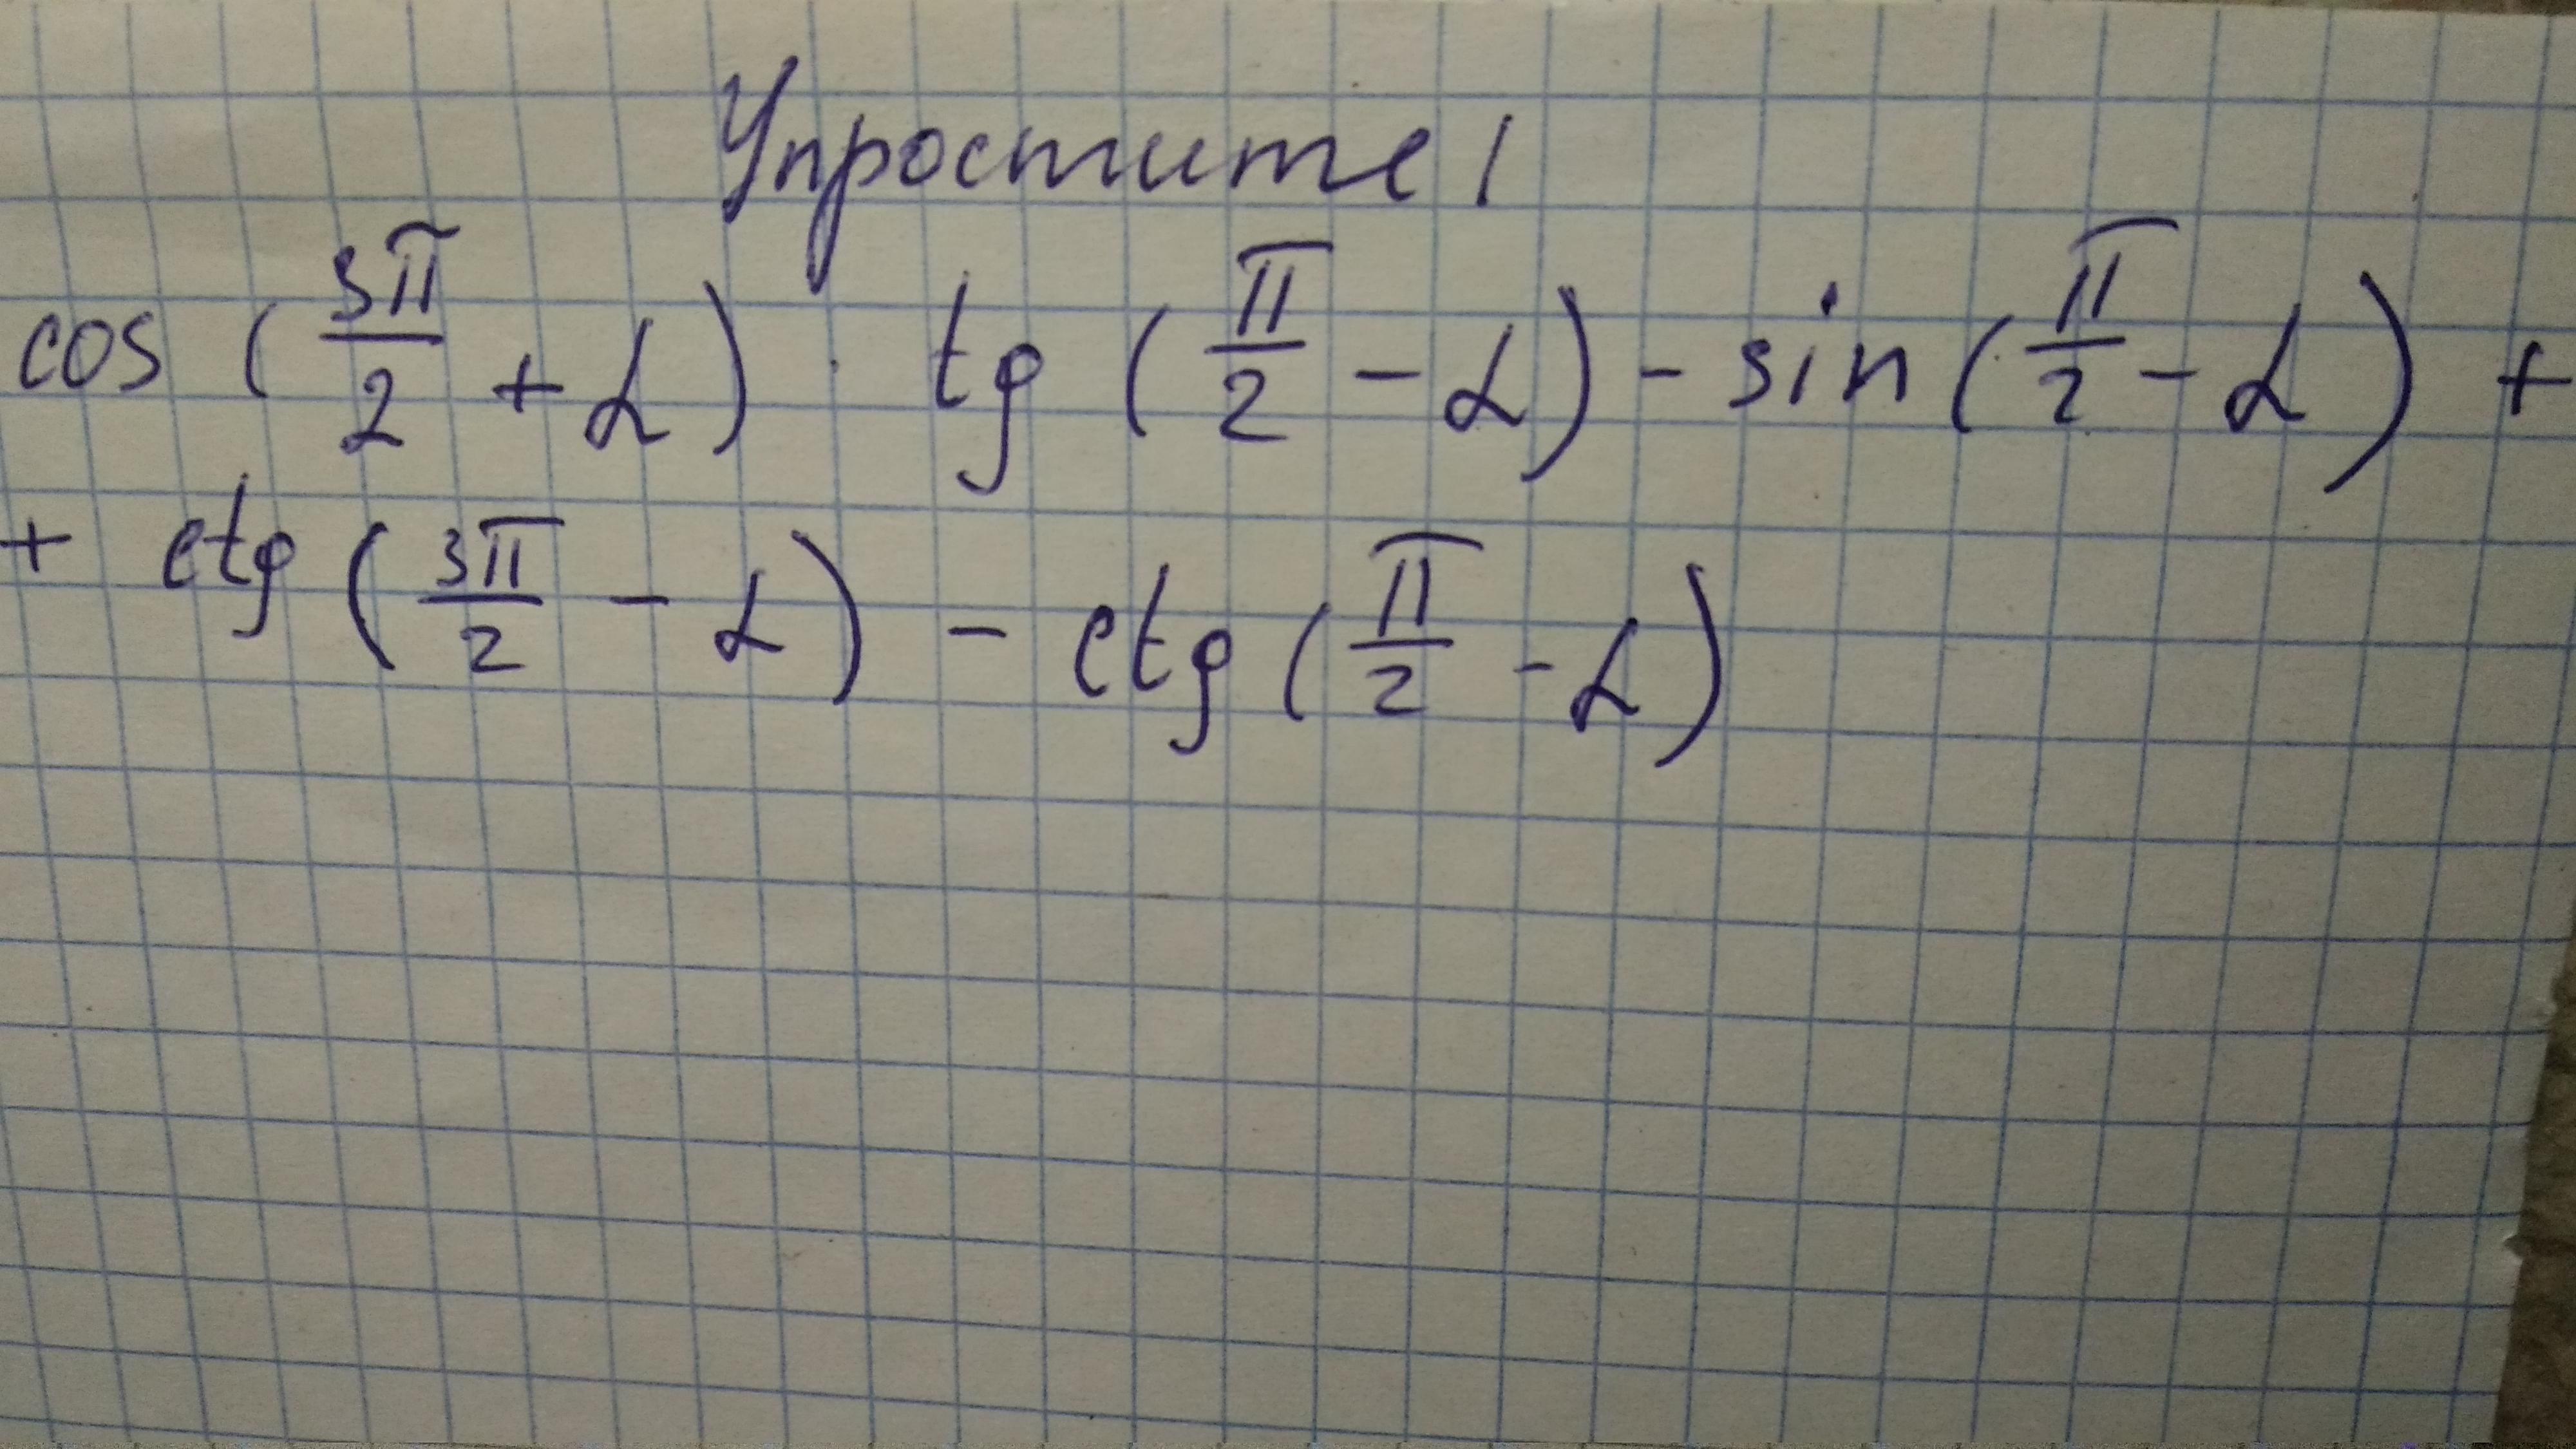 Упростите!
cos (3π/2 + α) · tg (π/2 - α) - sin (π/2 - α) +
+ ctg (3π/2 - α) - ctg (π/2 - α)